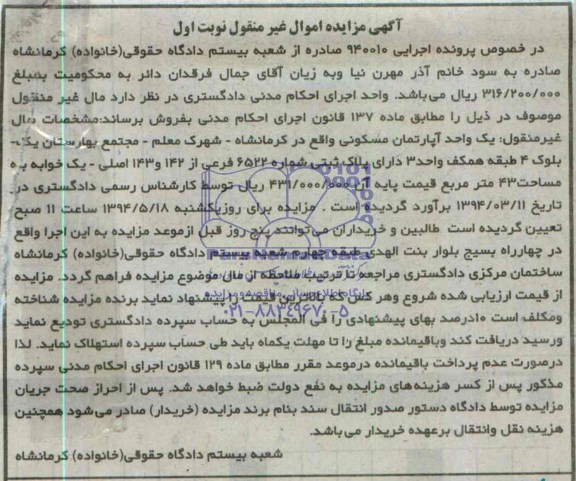 آگهی مزایده اموال غیر منقول نوبت اول
در خصوص پرونده اجرایی ۹۴۰۰۱۰ صادره از شعبه بیستم دادگاه حقوقی(خانواده) کرمانشاه
صادره به سود خانم آذر مهرن نیا وبه زیان آقای جمال فرقدان دائر به محکومیت بمبلغ
۳۱۶/۲۰۰/۰۰۰ ریال می‌باشد. واحد اجرای احکام مدنی دادگستری در نظر دارد مال غیر منقول
موصوف در ذیل را مطابق ماده ۱۳۷ قانون اجرای احکام مدنی بفروش برساند:مشخصات مال
غیرمنقول: یک واحد آپارتمان مسکونی واقع در کرمانشاه - شهرک معلم - مجتمع بهارستان یک-
بلوک ۴ طبقه همکف واحد۳ دارای پلاک ثبتی شماره ۶۵۲۲ فرعی از ۱۴۲ و۱۴۳ اصلی - یک خوابه به
مساحت۴۳ متر مربع قیمت پایه آن ۴۳۱/۰۰۰/۰۰۰ ریال توسط کارشناس رسمی دادگستری در
تاریخ ۱۳۹۴/۰۳/۱۱ برآورد گردیده است . مزایده برای روزیکشنبه ۱۳۹۴/۵/۱۸ ساعت ۱۱ صبح
تعیین گردیده است طالبین و خریداران می‌توانند پنج روز قبل ازموعد مزایده به این اجرا واقع
در چهارراه بسیج بلوار بنت الهدی طبقه چهارم شعبه بیستم دادگاه حقوقی(خانواده) کرمانشاه
ساختمان مرکزی دادگستری مراجعه تا ترتیب ملاحظه از مال موضوع مزایده فراهم گردد. مزایده
از قیمت ارزیابی شده شروع وهر کس که بالاترین قیمت را پیشنهاد نماید برنده مزایده شناخته
ومکلف است ۱۰درصد بهای پیشنهادی را فی المجلس به حساب سپرده دادگستری تودیع نماید
ورسید دریافت کند وباقیمانده مبلغ را تا مهلت یکماه باید طی حساب سپرده استهلاک نماید. لذا
درصورت عدم پرداخت باقیمانده درموعد مقرر مطابق ماده ۱۲۹ قانون اجرای احکام مدنی سپرده
مذکور پس از کسر هزینه‌های مزایده به نفع دولت ضبط خواهد شد. پس از احراز صحت جریان
مزایده توسط دادگاه دستور صدور انتقال سند بنام برند مزایده (خریدار) صادر می‌شود همچنین
هزینه نقل وانتقال برعهده خریدار می‌باشد.
شعبه بیستم دادگاه حقوقی(خانواده) کرمانشاه
۰۲۱-۸۸۳۴۹۶۷۰-۵